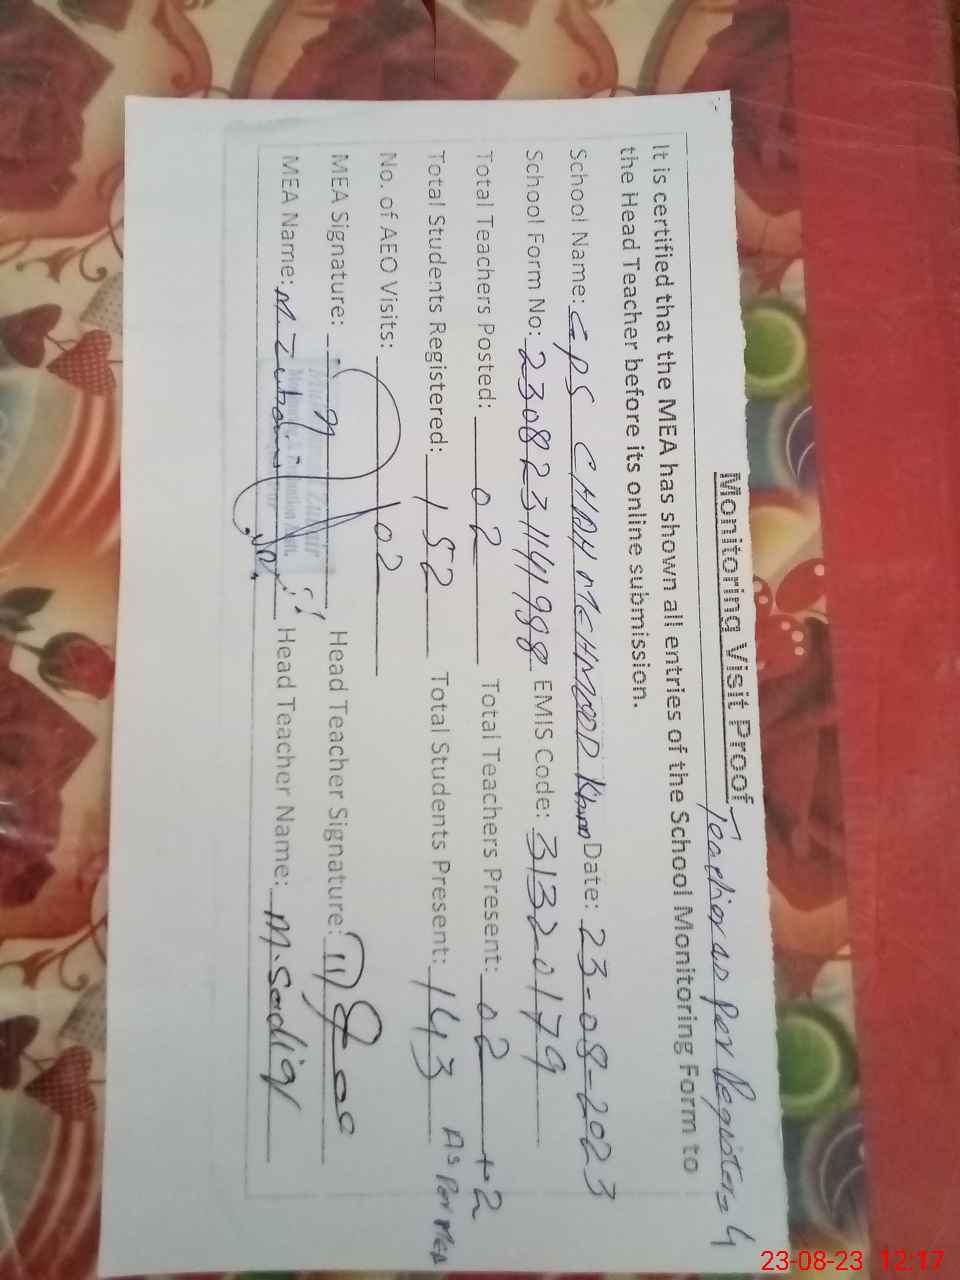 Monitoring Visit Proof Teacher as Per Register = 4
It is certified that the MEA has shown all entries of the School Monitoring Form to
the Head Teacher before its online submission.
School Name: GPS CHAH MEHMOOD Khan Date: 23-08-2023
School Form No: 2308231144988 EMIS Code: 31320179
Total Teachers Posted: 02 Total Teachers Present: 02 +2
Total Students Registered: 152 Total Students Present: 143 As Per MEA
No. of AEO Visits: 02
MEA Signature: Head Teacher Signature:
MEA Name: M. Zubair Head Teacher Name: M. Sadiq
23-08-23 12:17